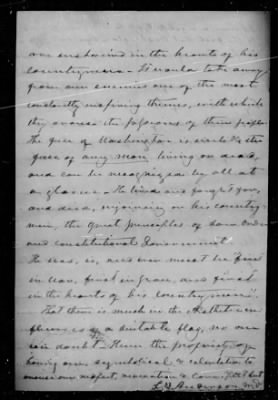 are enshrined in the hearts of his
countrymen. It would take away
from our enemies one of the most
constantly inspiring themes, with which
they arouse the of their people
The face of Washington is the
face of any man, living or dead,
and can be recognized by all at
a glance. He lived and fought for,
and died, enjoining on his country-
men, the great principles of
and constitutional Government.
He was, is, and ever must be "first
in war, first in peace, and first
in the hearts of his country men".
That there is much in the
of a suitable flag, no one
can doubt. Hence the propriety of
having one, symbolical, & calculated to
our respect, veneration &
L. Y. Anderson M.D.